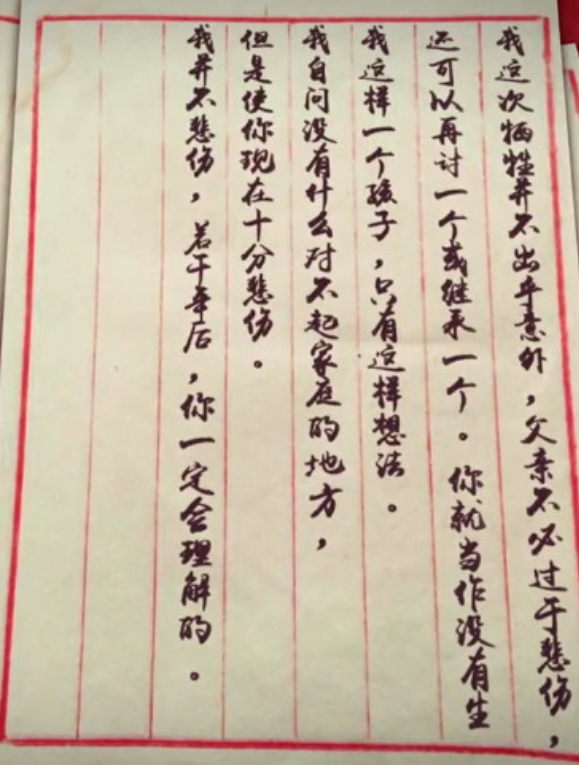 我这次牺牲并不出乎意外，父亲不必过于悲伤，
还可以再讨一个或继承一个。你就当作没有生
我这样一个孩子，只有这样想法。
我自问没有什么对不起家庭的地方，
但是使你现在十分悲伤。
我并不悲伤，若干年后，你一定会理解的。